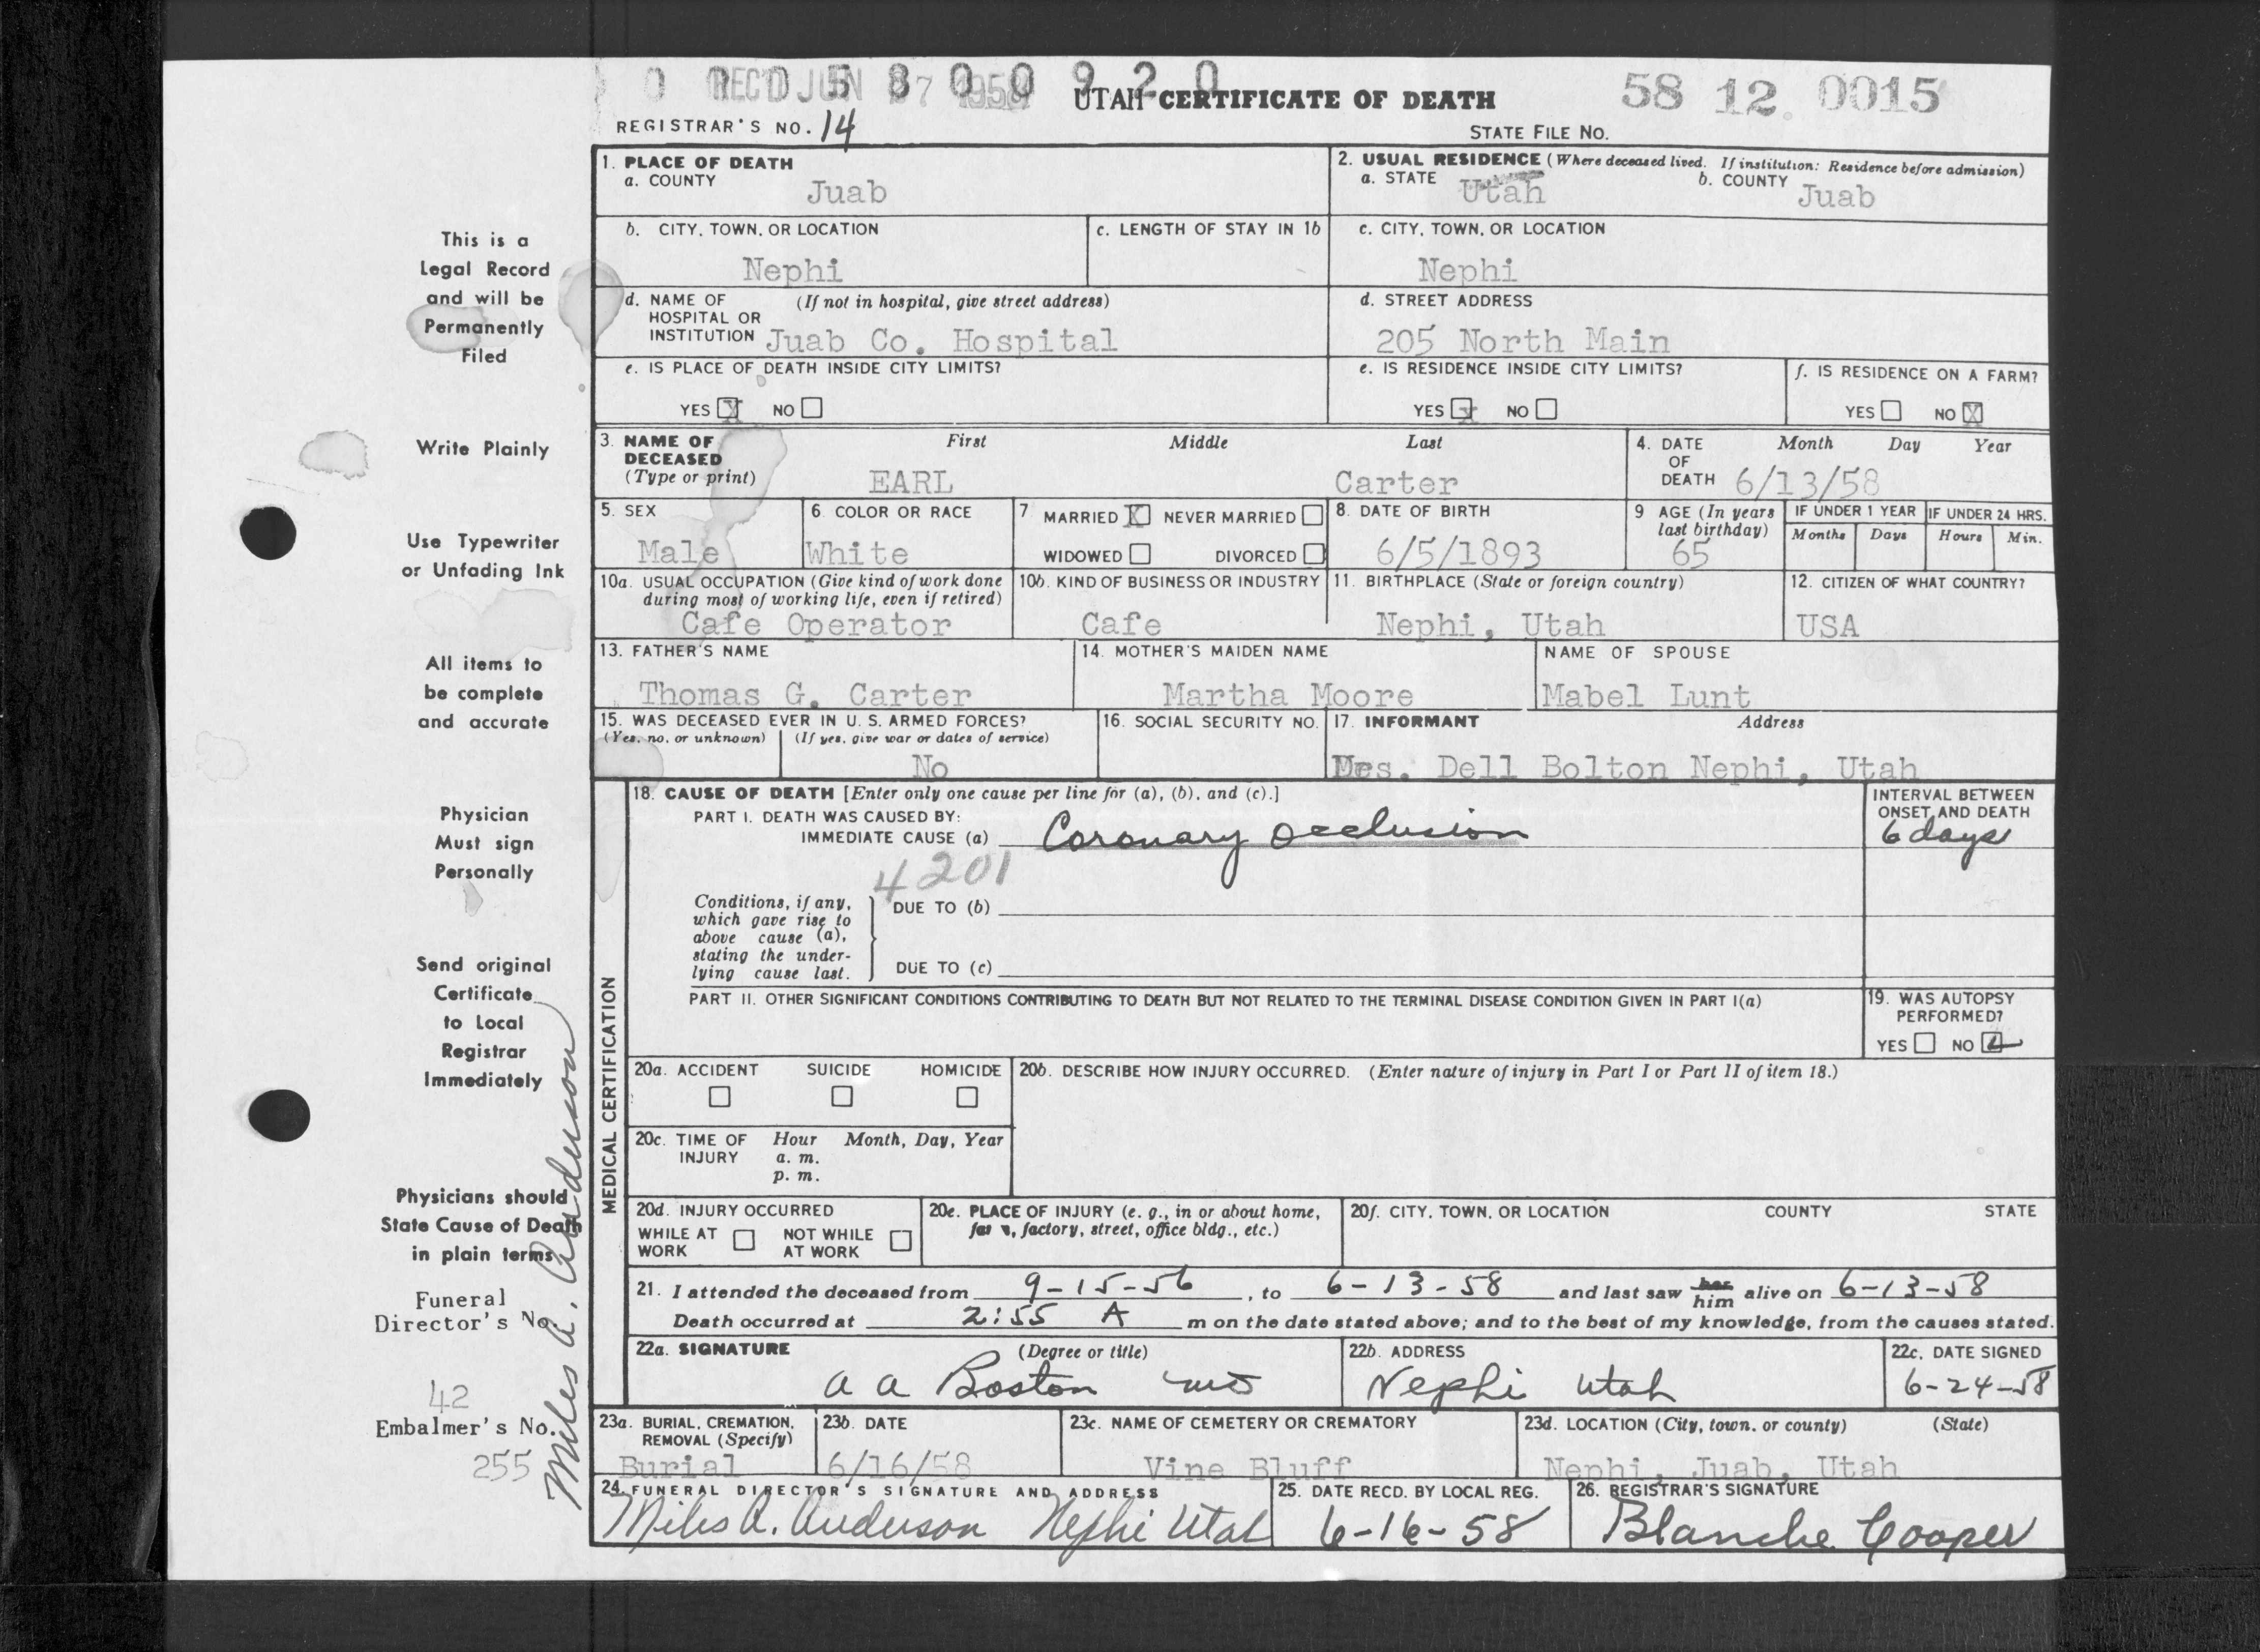 0 REC'D JUN 27 1958 5 8 0 0 9 2 0 UTAH CERTIFICATE OF DEATH 58 12 0015
REGISTRAR'S NO. 14 STATE FILE NO.
1. PLACE OF DEATH
a. COUNTY Juab
2. USUAL RESIDENCE (Where deceased lived. If institution: Residence before admission)
a. STATE Utah b. COUNTY Juab
b. CITY, TOWN, OR LOCATION Nephi
c. LENGTH OF STAY IN 1b
c. CITY, TOWN, OR LOCATION Nephi
d. NAME OF (If not in hospital, give street address)
HOSPITAL OR
INSTITUTION Juab Co. Hospital
d. STREET ADDRESS
205 North Main
e. IS PLACE OF DEATH INSIDE CITY LIMITS?
YES X NO
e. IS RESIDENCE INSIDE CITY LIMITS?
YES x NO
f. IS RESIDENCE ON A FARM?
YES NO X
3. NAME OF First Middle Last
DECEASED
(Type or print) EARL Carter
4. DATE Month Day Year
OF
DEATH 6/13/58
5. SEX
Male
6. COLOR OR RACE
White
7 MARRIED X NEVER MARRIED
WIDOWED DIVORCED
8. DATE OF BIRTH
6/5/1893
9 AGE (In years
last birthday)
65
IF UNDER 1 YEAR IF UNDER 24 HRS.
Months Days Hours Min.
10a. USUAL OCCUPATION (Give kind of work done
during most of working life, even if retired)
Cafe Operator
10b. KIND OF BUSINESS OR INDUSTRY
Cafe
11. BIRTHPLACE (State or foreign country)
Nephi, Utah
12. CITIZEN OF WHAT COUNTRY?
USA
13. FATHER'S NAME
Thomas G. Carter
14. MOTHER'S MAIDEN NAME
Martha Moore
NAME OF SPOUSE
Mabel Lunt
15. WAS DECEASED EVER IN U. S. ARMED FORCES?
(Yes, no, or unknown) (If yes, give war or dates of service)
No
16. SOCIAL SECURITY NO.
17. INFORMANT Address
Mrs. Dell Bolton Nephi, Utah
MEDICAL CERTIFICATION
18. CAUSE OF DEATH [Enter only one cause per line for (a), (b), and (c).]
PART I. DEATH WAS CAUSED BY:
IMMEDIATE CAUSE (a) Coronary occlusion
INTERVAL BETWEEN
ONSET AND DEATH
6 days
4201
Conditions, if any,
which gave rise to
above cause (a),
stating the under-
lying cause last.
DUE TO (b)
DUE TO (c)
PART II. OTHER SIGNIFICANT CONDITIONS CONTRIBUTING TO DEATH BUT NOT RELATED TO THE TERMINAL DISEASE CONDITION GIVEN IN PART I(a)
19. WAS AUTOPSY
PERFORMED?
YES NO
20a. ACCIDENT SUICIDE HOMICIDE
20b. DESCRIBE HOW INJURY OCCURRED. (Enter nature of injury in Part I or Part II of item 18.)
20c. TIME OF Hour Month, Day, Year
INJURY a. m.
p. m.
20d. INJURY OCCURRED
WHILE AT NOT WHILE
WORK AT WORK
20e. PLACE OF INJURY (e. g., in or about home,
farm, factory, street, office bldg., etc.)
20f. CITY, TOWN, OR LOCATION COUNTY STATE
21. I attended the deceased from 9-15-56, to 6-13-58 and last saw her him alive on 6-13-58
Death occurred at 2:55 A m on the date stated above; and to the best of my knowledge, from the causes stated.
22a. SIGNATURE (Degree or title)
A A Boston MD
22b. ADDRESS
Nephi Utah
22c. DATE SIGNED
6-24-58
23a. BURIAL, CREMATION,
REMOVAL (Specify)
Burial
23b. DATE
6/16/58
23c. NAME OF CEMETERY OR CREMATORY
Vine Bluff
23d. LOCATION (City, town, or county) (State)
Nephi, Juab, Utah
24. FUNERAL DIRECTOR'S SIGNATURE AND ADDRESS
Miles A. Anderson Nephi Utah
25. DATE RECD. BY LOCAL REG.
6-16-58
26. REGISTRAR'S SIGNATURE
Blanche Cooper
This is a
Legal Record
and will be
Permanently
Filed
Write Plainly
Use Typewriter
or Unfading Ink
All items to
be complete
and accurate
Physician
Must sign
Personally
Send original
Certificate
to Local
Registrar
Immediately
Physicians should
State Cause of Death
in plain terms
Funeral
Director's No.
42
Embalmer's No.
255
Miles A. Anderson